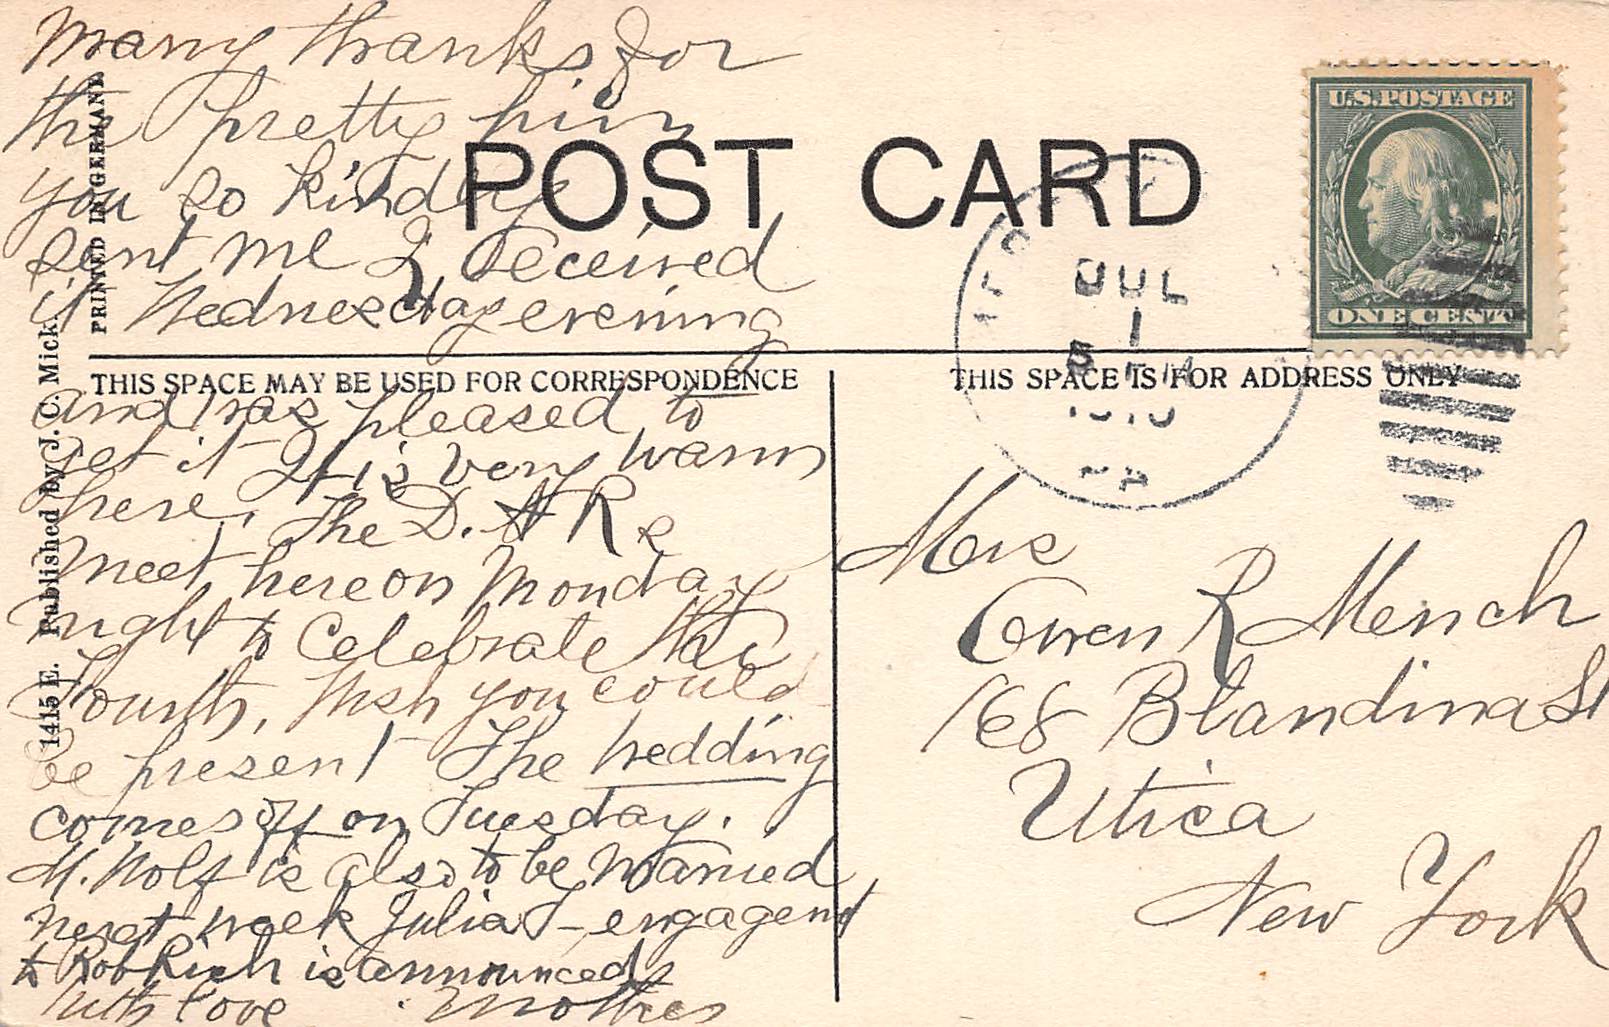 Many thanks for
the pretty pin
you so kindly
sent me I received
it Wednesday evening
and was pleased to
get it It is very warm
here. The D. A R s
meet here on Monday
night to celebrate the
Fourth, Wish you could
be present The wedding
comes off on Tuesday.
M. Wolf is also to be married
next week Julia T– engagemt
to Rob Rich is announced
With love . Mother
POST CARD
THIS SPACE MAY BE USED FOR CORRESPONDENCE
THIS SPACE IS FOR ADDRESS ONLY
PRINTED IN GERMANY
1415 E. Published by J. C. Mick.
U.S. POSTAGE
ONE CENT
JUL
1
5 PM
1910
PA
Mrs
Owen R Mench
168 Blandina St
Utica
New York